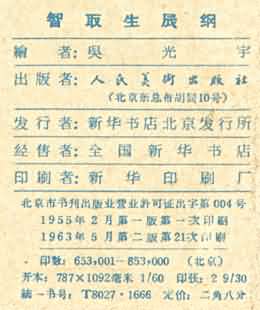 智取生辰綱
繪者：吳光宇
出版者：人民美術出版社
（北京东总布胡同10号）
发行者：新华书店北京发行所
经售者：全国新华书店
印刷者：新华印刷厂
北京市书刊出版业营业許可証出字第004号
1955年2月第一版第一次印刷
1963年5月第二版第21次印刷
印数：653,001—853,000（北京）
开本：787×1092毫米 1/60 印張：2 9/30
統一书号：T8027·1666 定价：二角八分